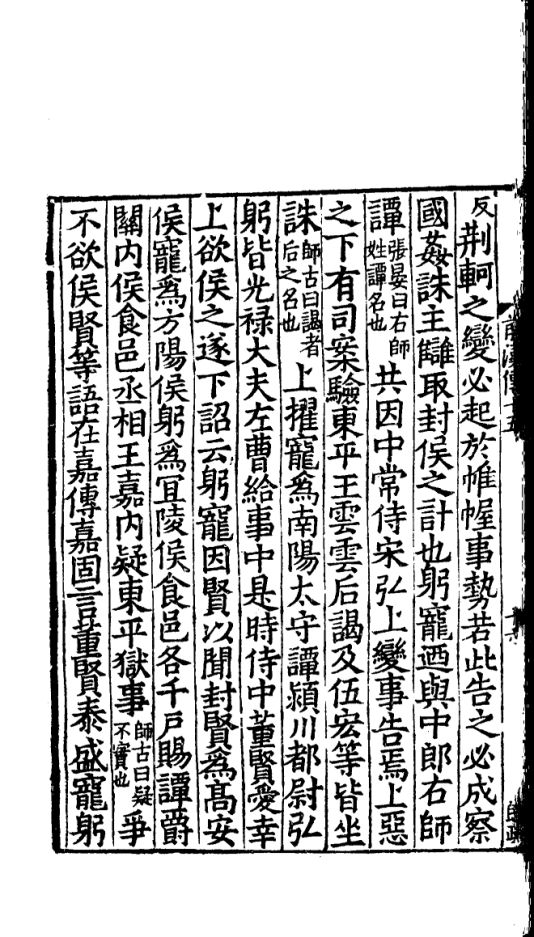 反荆軻之變必起於帷幄事勢若此告之必成察
國姦誅主讎取封侯之計也躬寵迺與中郎右師
譚張晏曰右師姓譚名也共因中常侍宋弘上變事告焉上惡
之下有司案驗東平王雲雲后謁及伍宏等皆坐
誅師古曰謁者后之名也上擢寵爲南陽太守譚潁川都尉弘
躬皆光禄大夫左曹給事中是時侍中董賢愛幸
上欲侯之遂下詔云躬寵因賢以聞封賢爲高安
侯寵爲方陽侯躬爲宜陵侯食邑各千戸賜譚爵
關内侯食邑丞相王嘉内疑東平獄事師古曰疑不實也爭
不欲侯賢等語在嘉傳嘉固言董賢泰盛寵躬